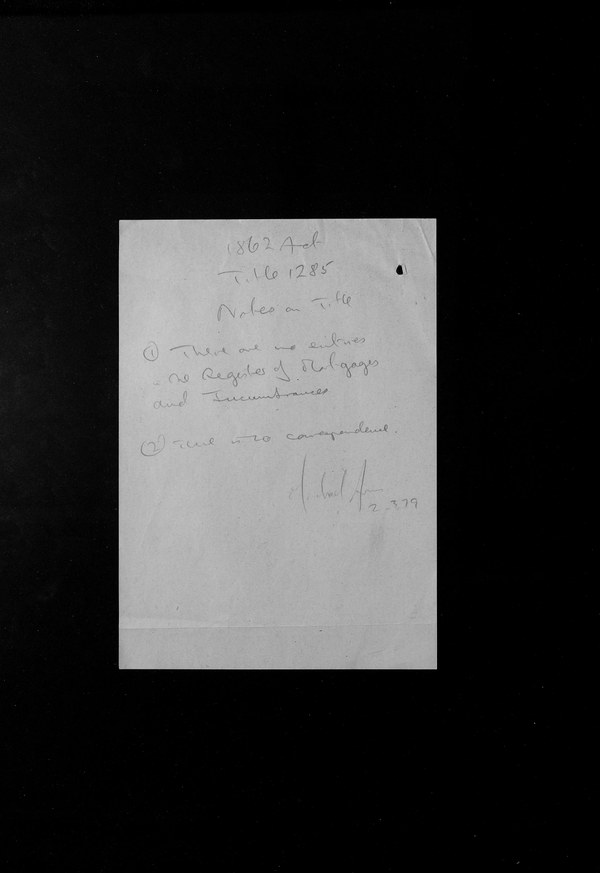 1862 Act
Title 1285
Notes on Title
① There are no entries
in the Register of Mortgages
and Incumbrances
② There is no correspondence.
2.3.79